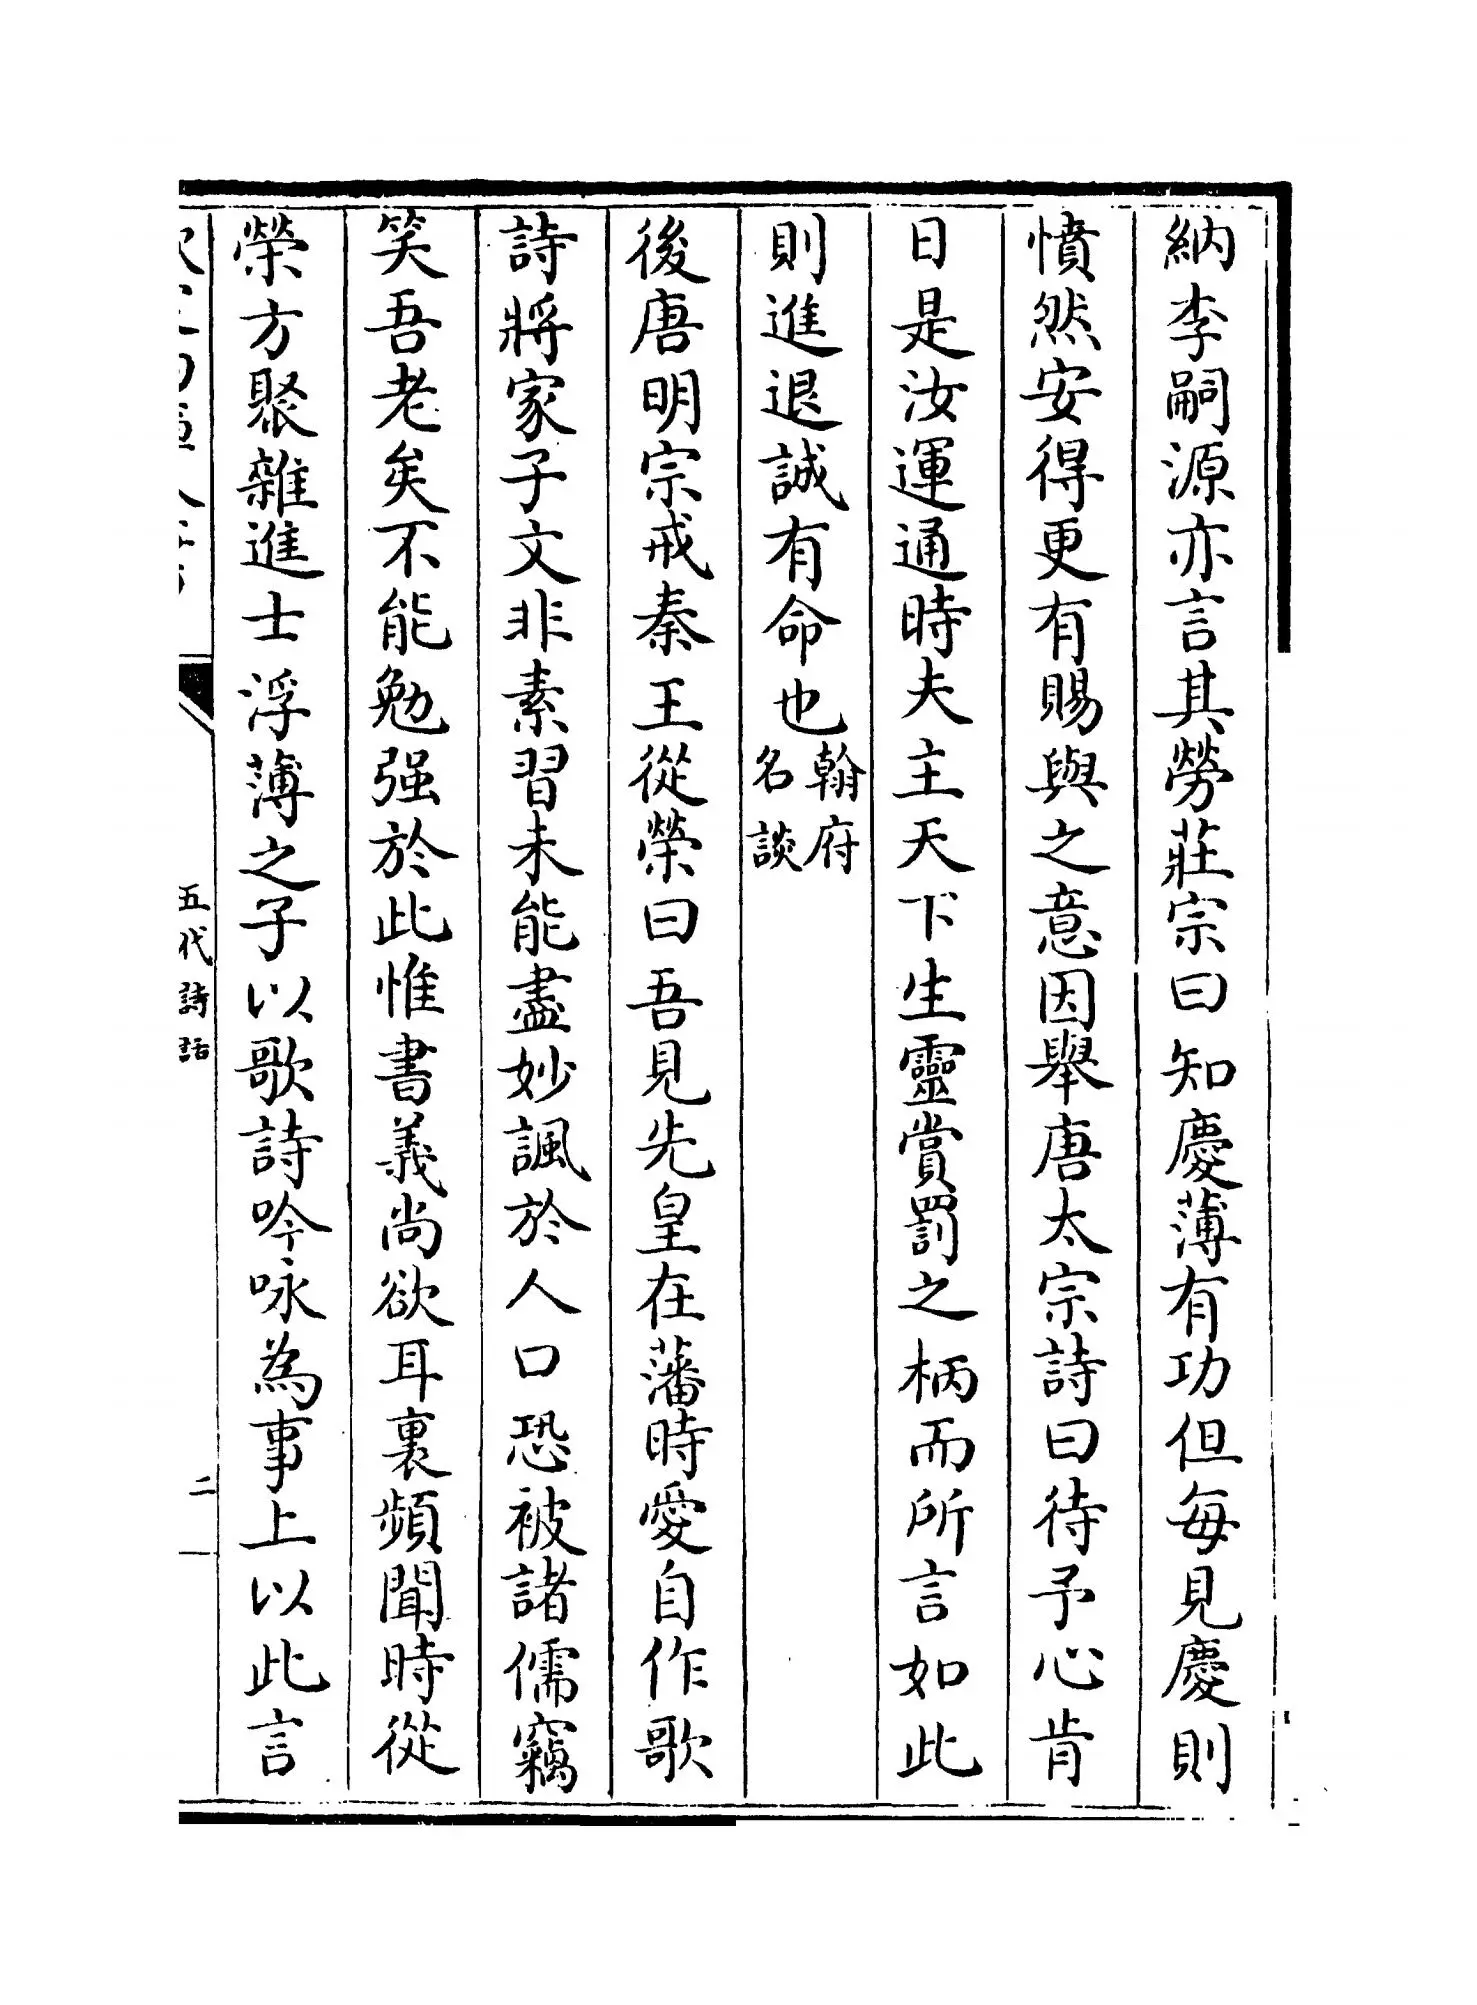 納李嗣源亦言其勞莊宗曰知慶薄有功但每見慶則
憤然安得更有賜與之意因舉唐太宗詩曰待予心肯
日是汝運通時夫主天下生靈賞罰之柄而所言如此
則進退誠有命也翰府名談
後唐明宗戒秦王從榮曰吾見先皇在藩時愛自作歌
詩將家子文非素習未能盡妙諷於人口恐被諸儒竊
笑吾老矣不能勉强於此惟書義尚欲耳裏頻聞時從
榮方聚雜進士浮薄之子以歌詩吟咏為事上以此言
五代詩話
二